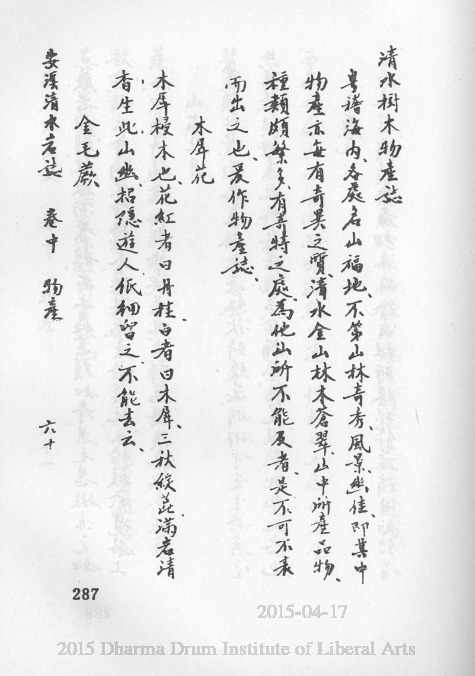 清水樹木物產誌
粤稽海內、各處名山福地、不第山林奇秀、風景幽佳、即其中
物產亦每有奇異之質、清水全山林木蒼翠、山中所產品物、
種類頗繁多、有奇特之處、為他山所不能及者、是不可不表
而出之也、爰作物產誌、
木犀花
木犀桂木也、花紅者曰丹桂、白者曰木犀、三秋綻蕊滿岩清
香生此山幽、招隱遊人低徊留之、不能去云、
金毛蕨
安溪清水岩誌 卷中 物產 六十一
287
2015-04-17
2015 Dharma Drum Institute of Liberal Arts